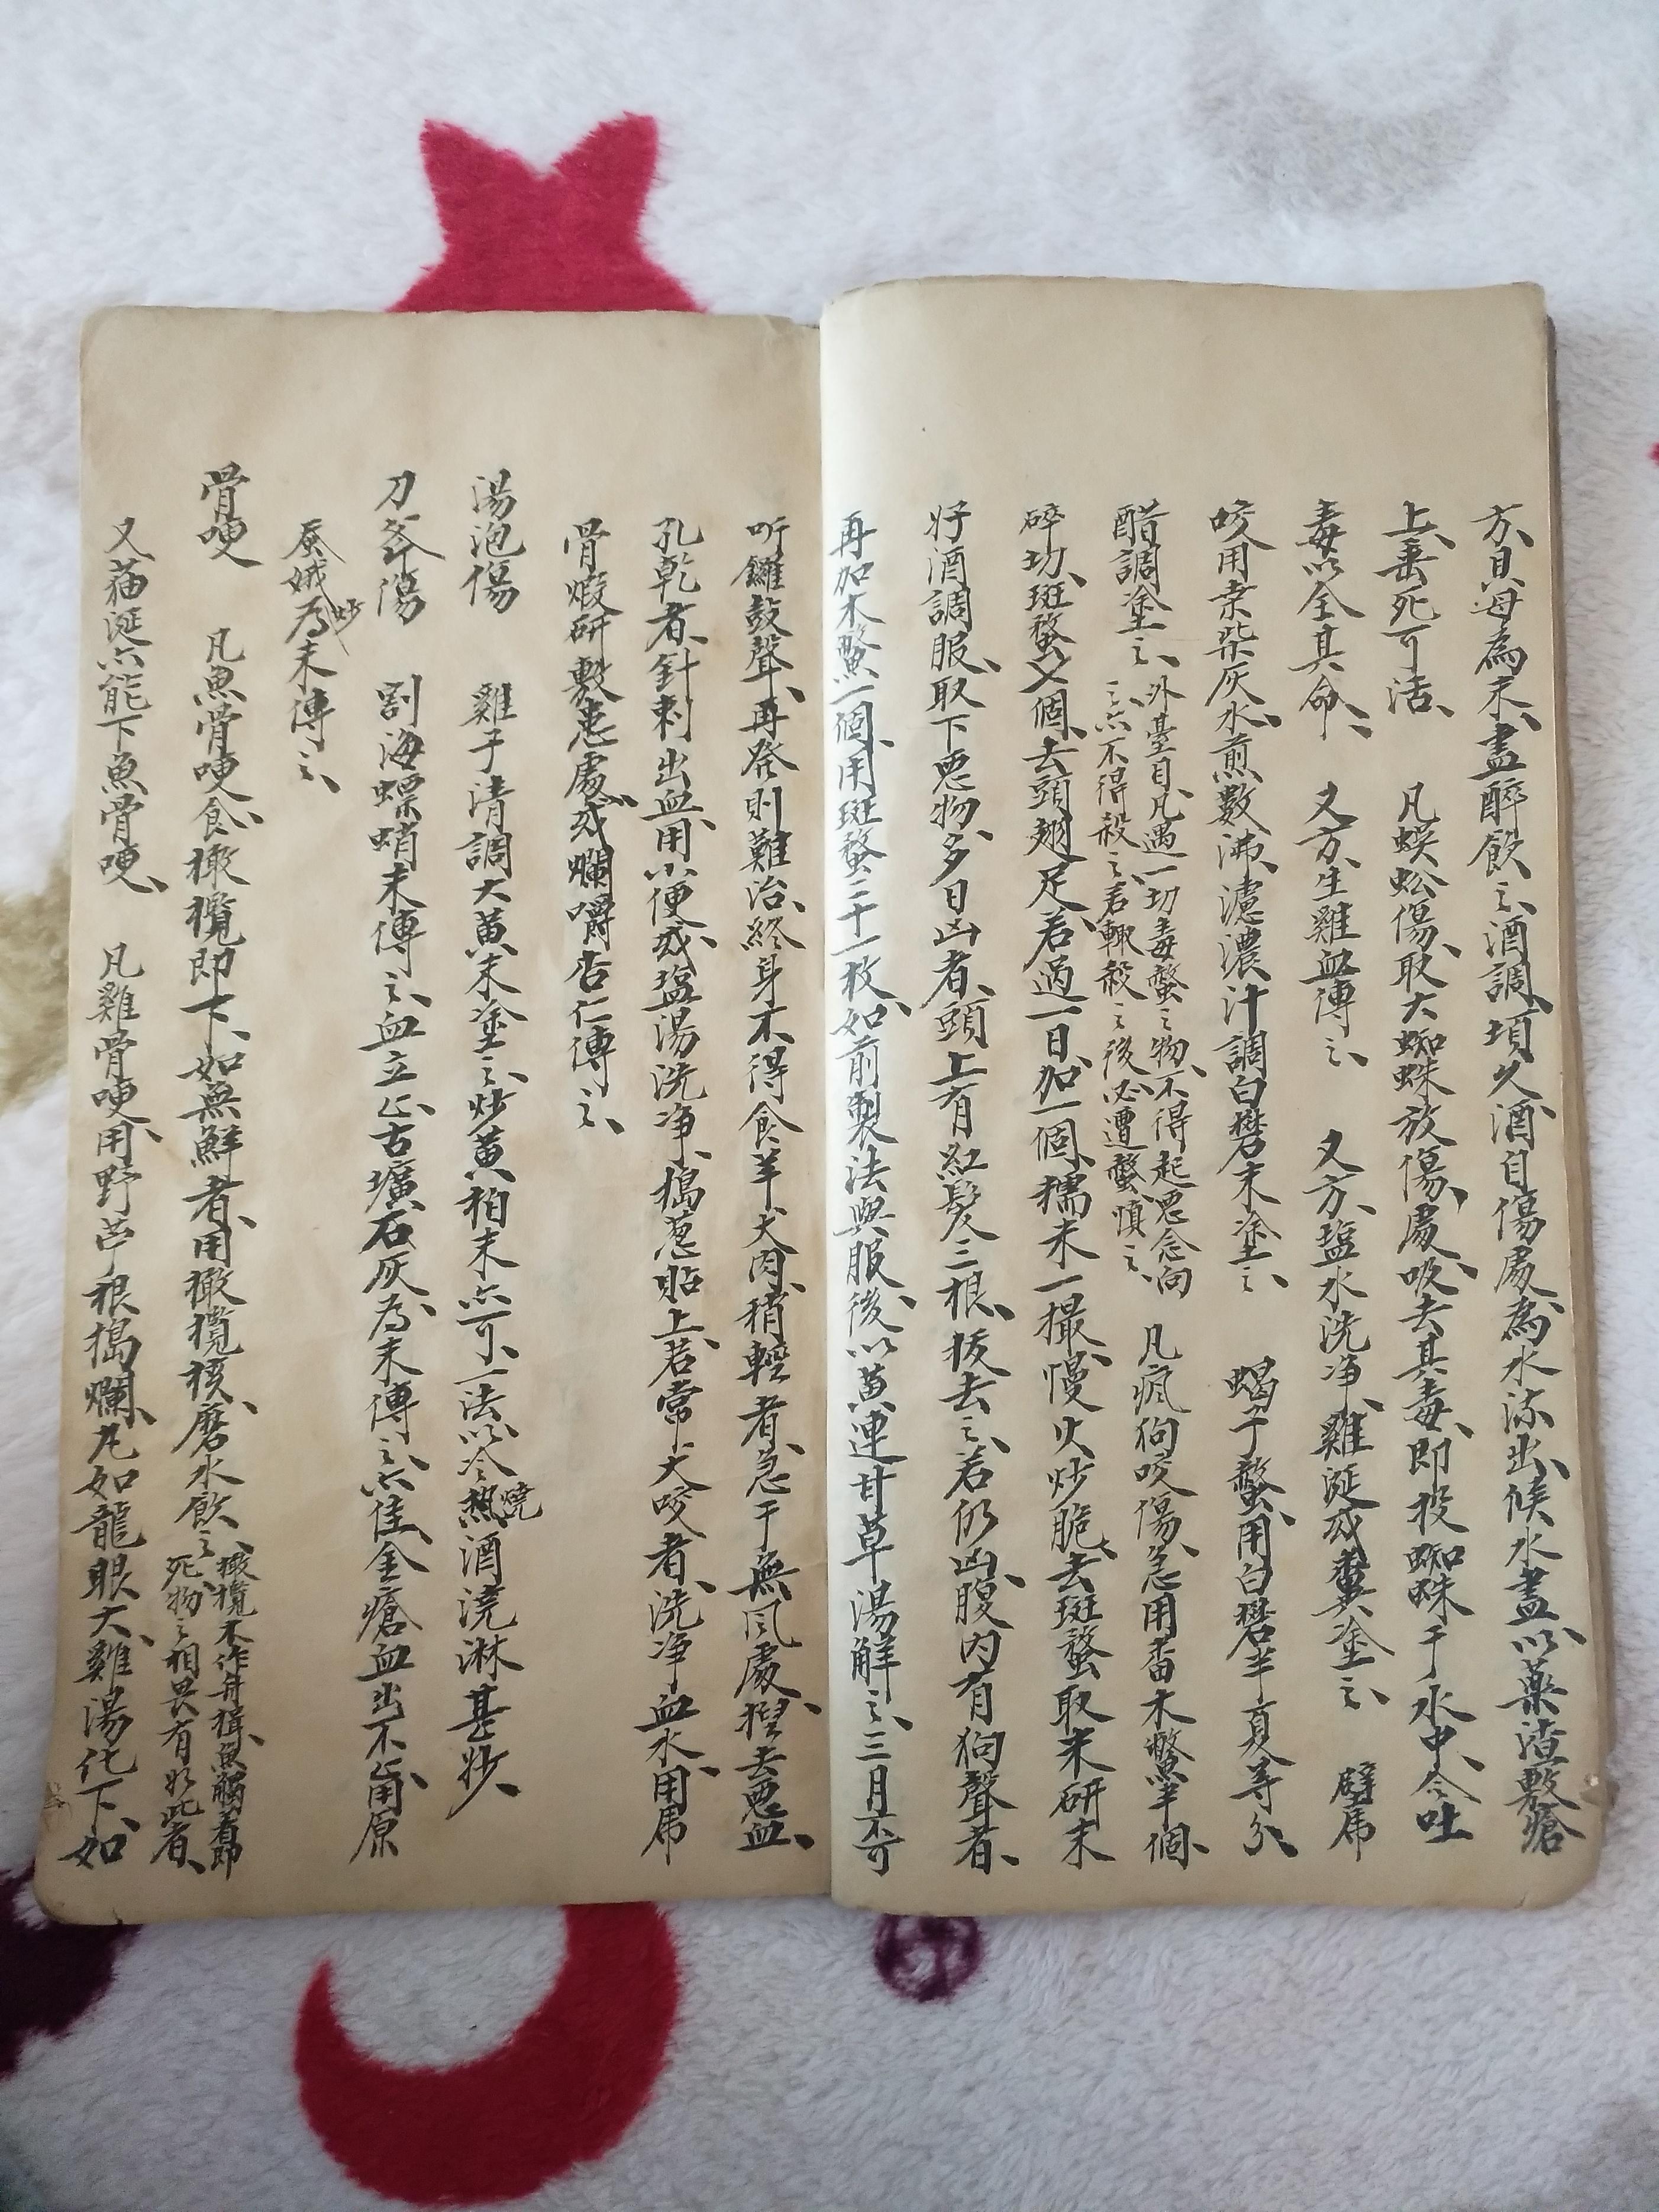 方貝母為末、盡醉飲之、酒調、頃久酒自傷處為水流出、候水盡、以藥渣敷瘡
上、垂死可活、 凡蜈蚣傷、取大蜘蛛放傷處、吸去其毒、即投蜘蛛于水中、令吐
毒以全其命、 又方、生雞血傅之、 又方、塩水洗净、雞涎或糞塗之、 壁虎
咬用桑柴灰水煎數沸、濾濃汁調白礬末塗之、 蝎子螫、用白礬半夏等分、
醋調塗之、
外臺曰、凡遇一切毒螫之物、不得起惡念向
之、亦不得殺之、若輙殺之後必遭螫慎之、
凡瘋狗咬傷、急用番木鱉半個、
碎切、斑蝥七個、去頭翅足、若過一日、加一個、糯米一撮、慢火炒脆、去斑蝥取米研末
好酒調服、取下惡物、多日凶者、頭上有紅髮三根、拔去之、若仍凶、腹内有狗聲者、
再加木鱉一個、用斑蝥二十一枚、如前製法與服後、以黄連甘草湯解之、三月不可
听鑼鼓聲、再発則難治、終身不得食羊犬肉、稍輕者、急于無風處、捏去惡血、
孔乾者、針刺出血、用小便或塩湯洗净、搗葱貼上、若常犬咬者、洗净血水、用虎
骨煅研敷患處、或爛嚼杏仁傅之、
湯泡傷 雞子清調大黄末塗之、炒黄柏末亦可、一法以冷熱燒酒澆淋甚妙、
刀斧傷 割海螵蛸末傅之、血立止、古壙石灰為末傅之、亦佳、金瘡血出不止、用原
蚕娥炒為末傅之、
骨哽 凡魚骨哽、食橄欖即下、如無鮮者、用橄欖核磨水飲之、
橄欖木作舟楫、魚觸着即
死、物之相畏有如此者、
又猫涎亦能下魚骨哽、 凡雞骨哽、用野苎根搗爛、丸如龍眼大、雞湯化下、如